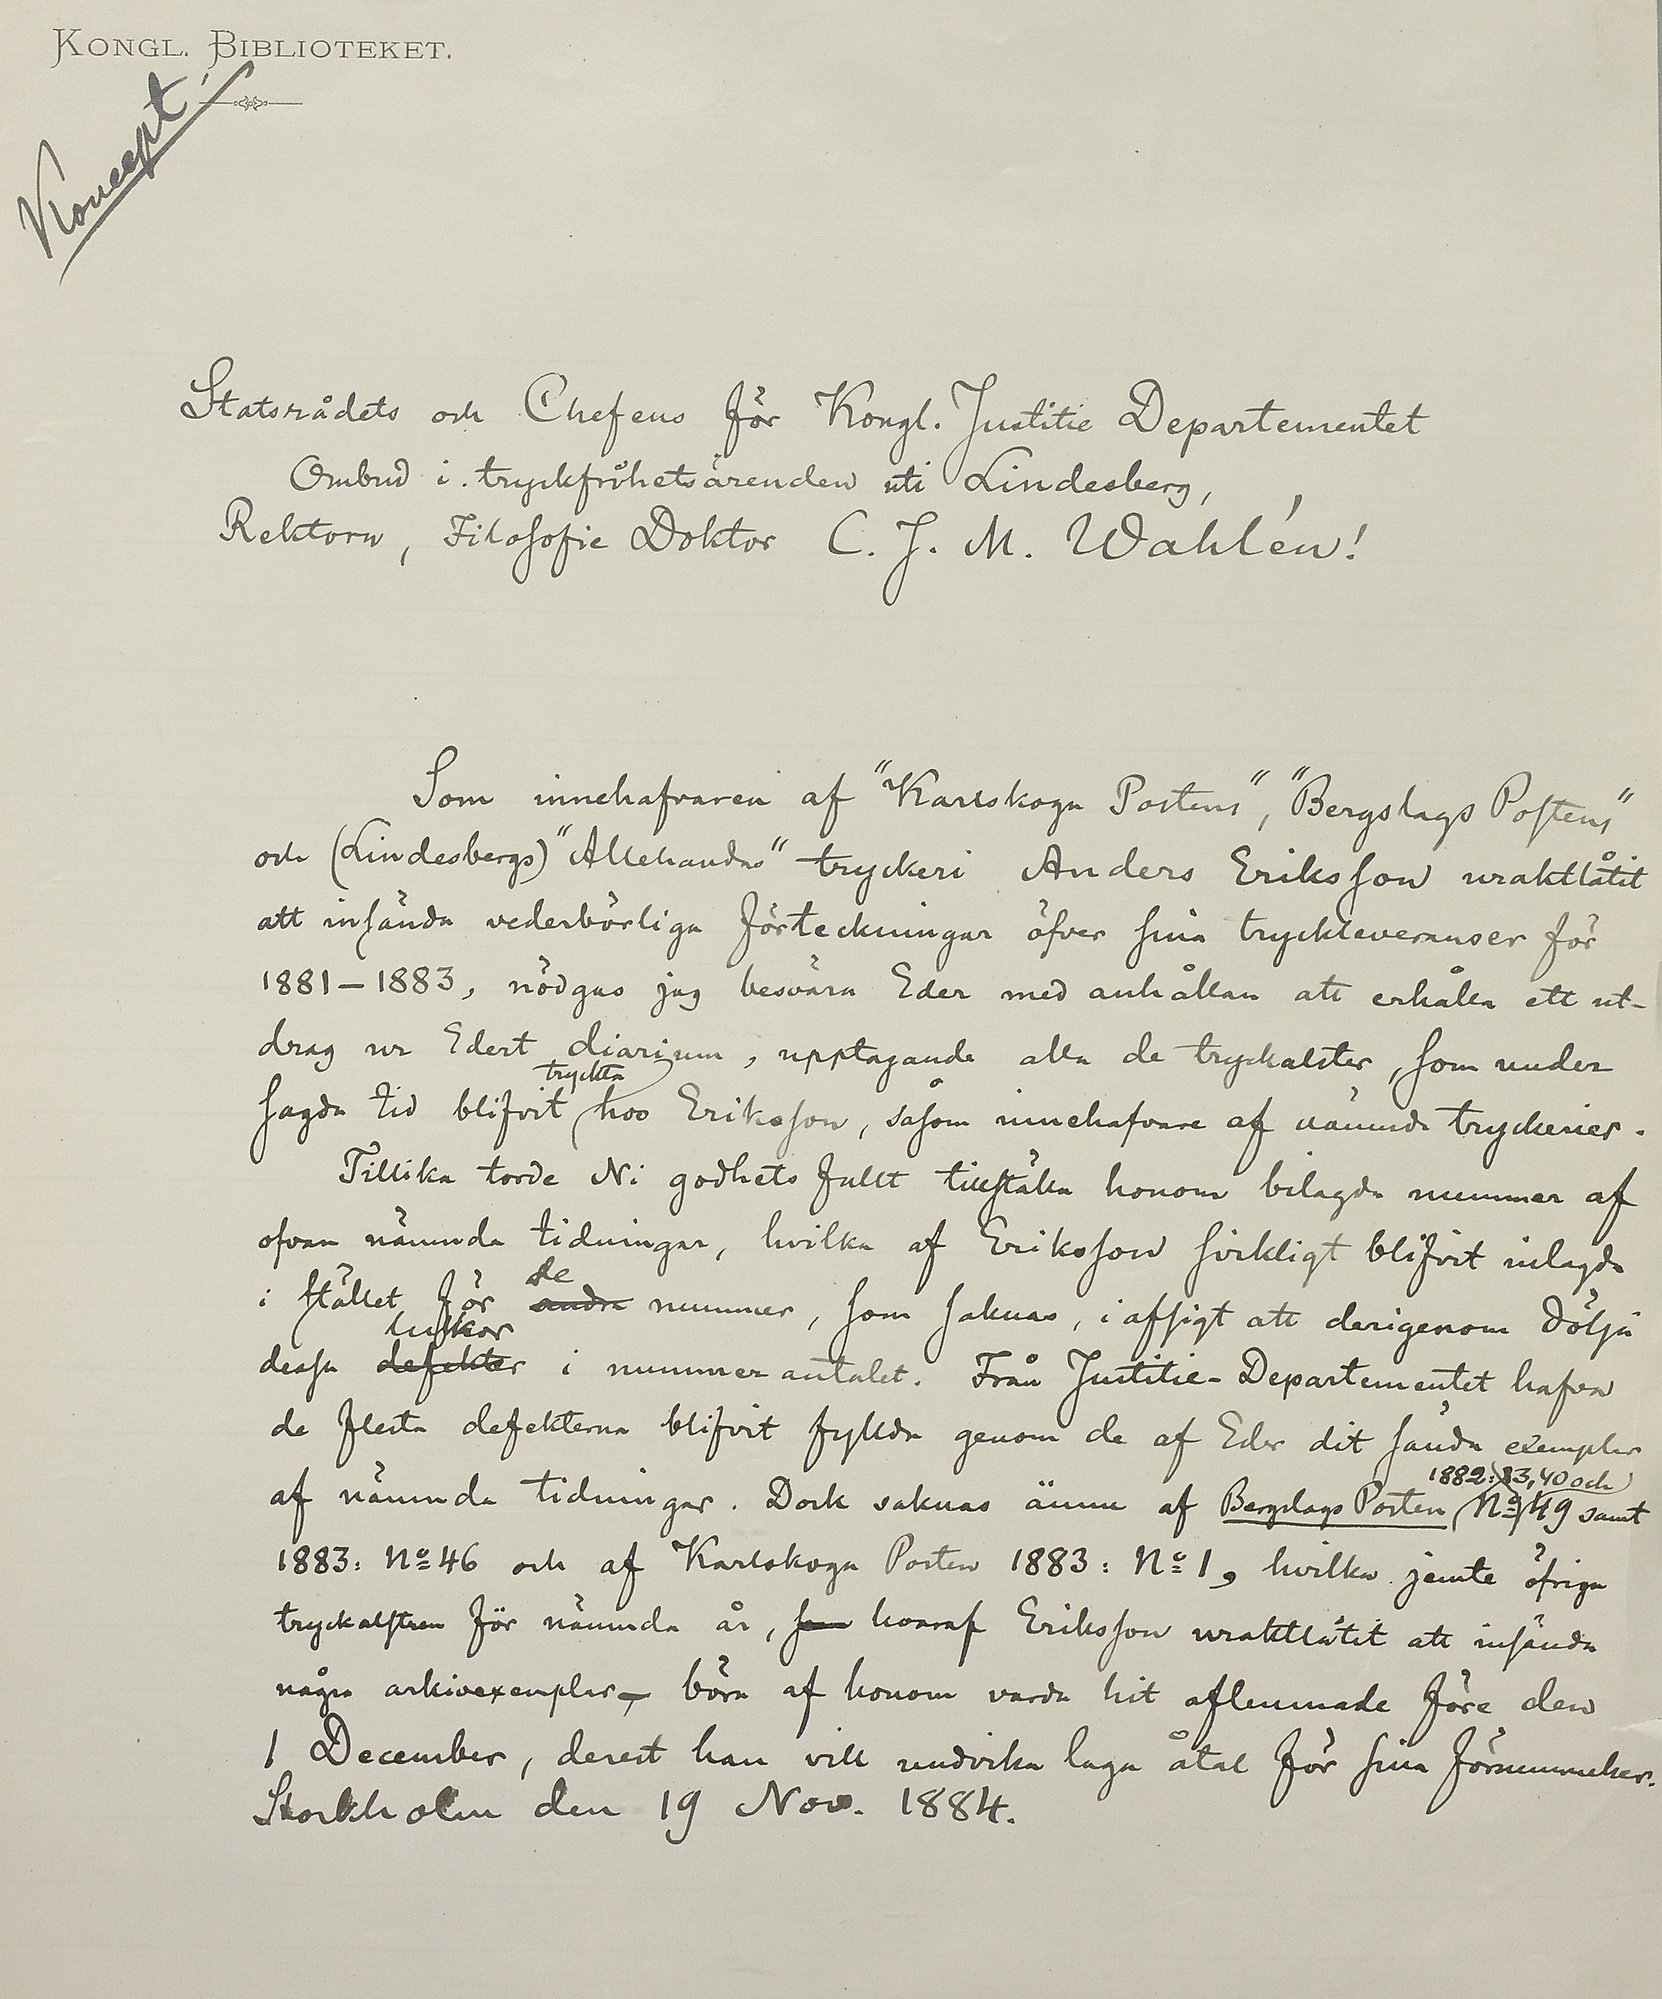 KONGL. BIBLIOTEKET.
Koncept
Statsrådets och Chefens för Kongl. Justitie Departementet
Ombud i tryckfrihetsärenden uti Lindesberg,
Rektorn, Filosofie Doktor C. J. M. Wahlén!
Som innehafvaren af "Karlskoga Postens", "Bergslags Postens"
och (Lindesbergs) "Allehandas" tryckeri Anders Eriksson uraktlåtit
att insända vederbörliga förteckningar öfver sina tryckleveranser för
1881–1883, nödgas jag besvära Eder med anhållan att erhålla ett ut-
drag ur Edert diarium, upptagande alla de tryckalster, som under
tryckta
sagda tid blifvit hos Eriksson, såsom innehafvare af nämnda tryckerier.
Tillika torde Ni godhetsfullt tillställa honom bilagda nummer af
ofvan nämnda tidningar, hvilka af Eriksson sirligt blifvit inlagda
de
i stället för andra nummer, som saknas, i afsigt att derigenom dölja
luckor
dessa defekter i nummerantalet. Från Justitie-Departementet hafva
de flesta defekterna blifvit fyllda genom de af Eder dit sända exemplar
1882: 33, 40 och
af nämnda tidningar. Dock saknas ännu af Bergslags Posten No 49 samt
1883: No 46 och af Karlskoga Posten 1883: No 1, hvilka jemte öfriga
tryckalstren för nämnda år, som hvaraf Eriksson uraktlåtit att insända
några arkivexemplar, böra af honom varda hit aflemnade före den
1 December, derest han vill undvika laga åtal för sina försummelser.
Stockholm den 19 Nov. 1884.